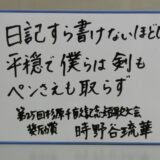 日記すら書けないほど
平穏で僕らは剣も
ペンさえも取らず
第25回杉原千畝記念短歌大会
奨励賞
時野谷琉華